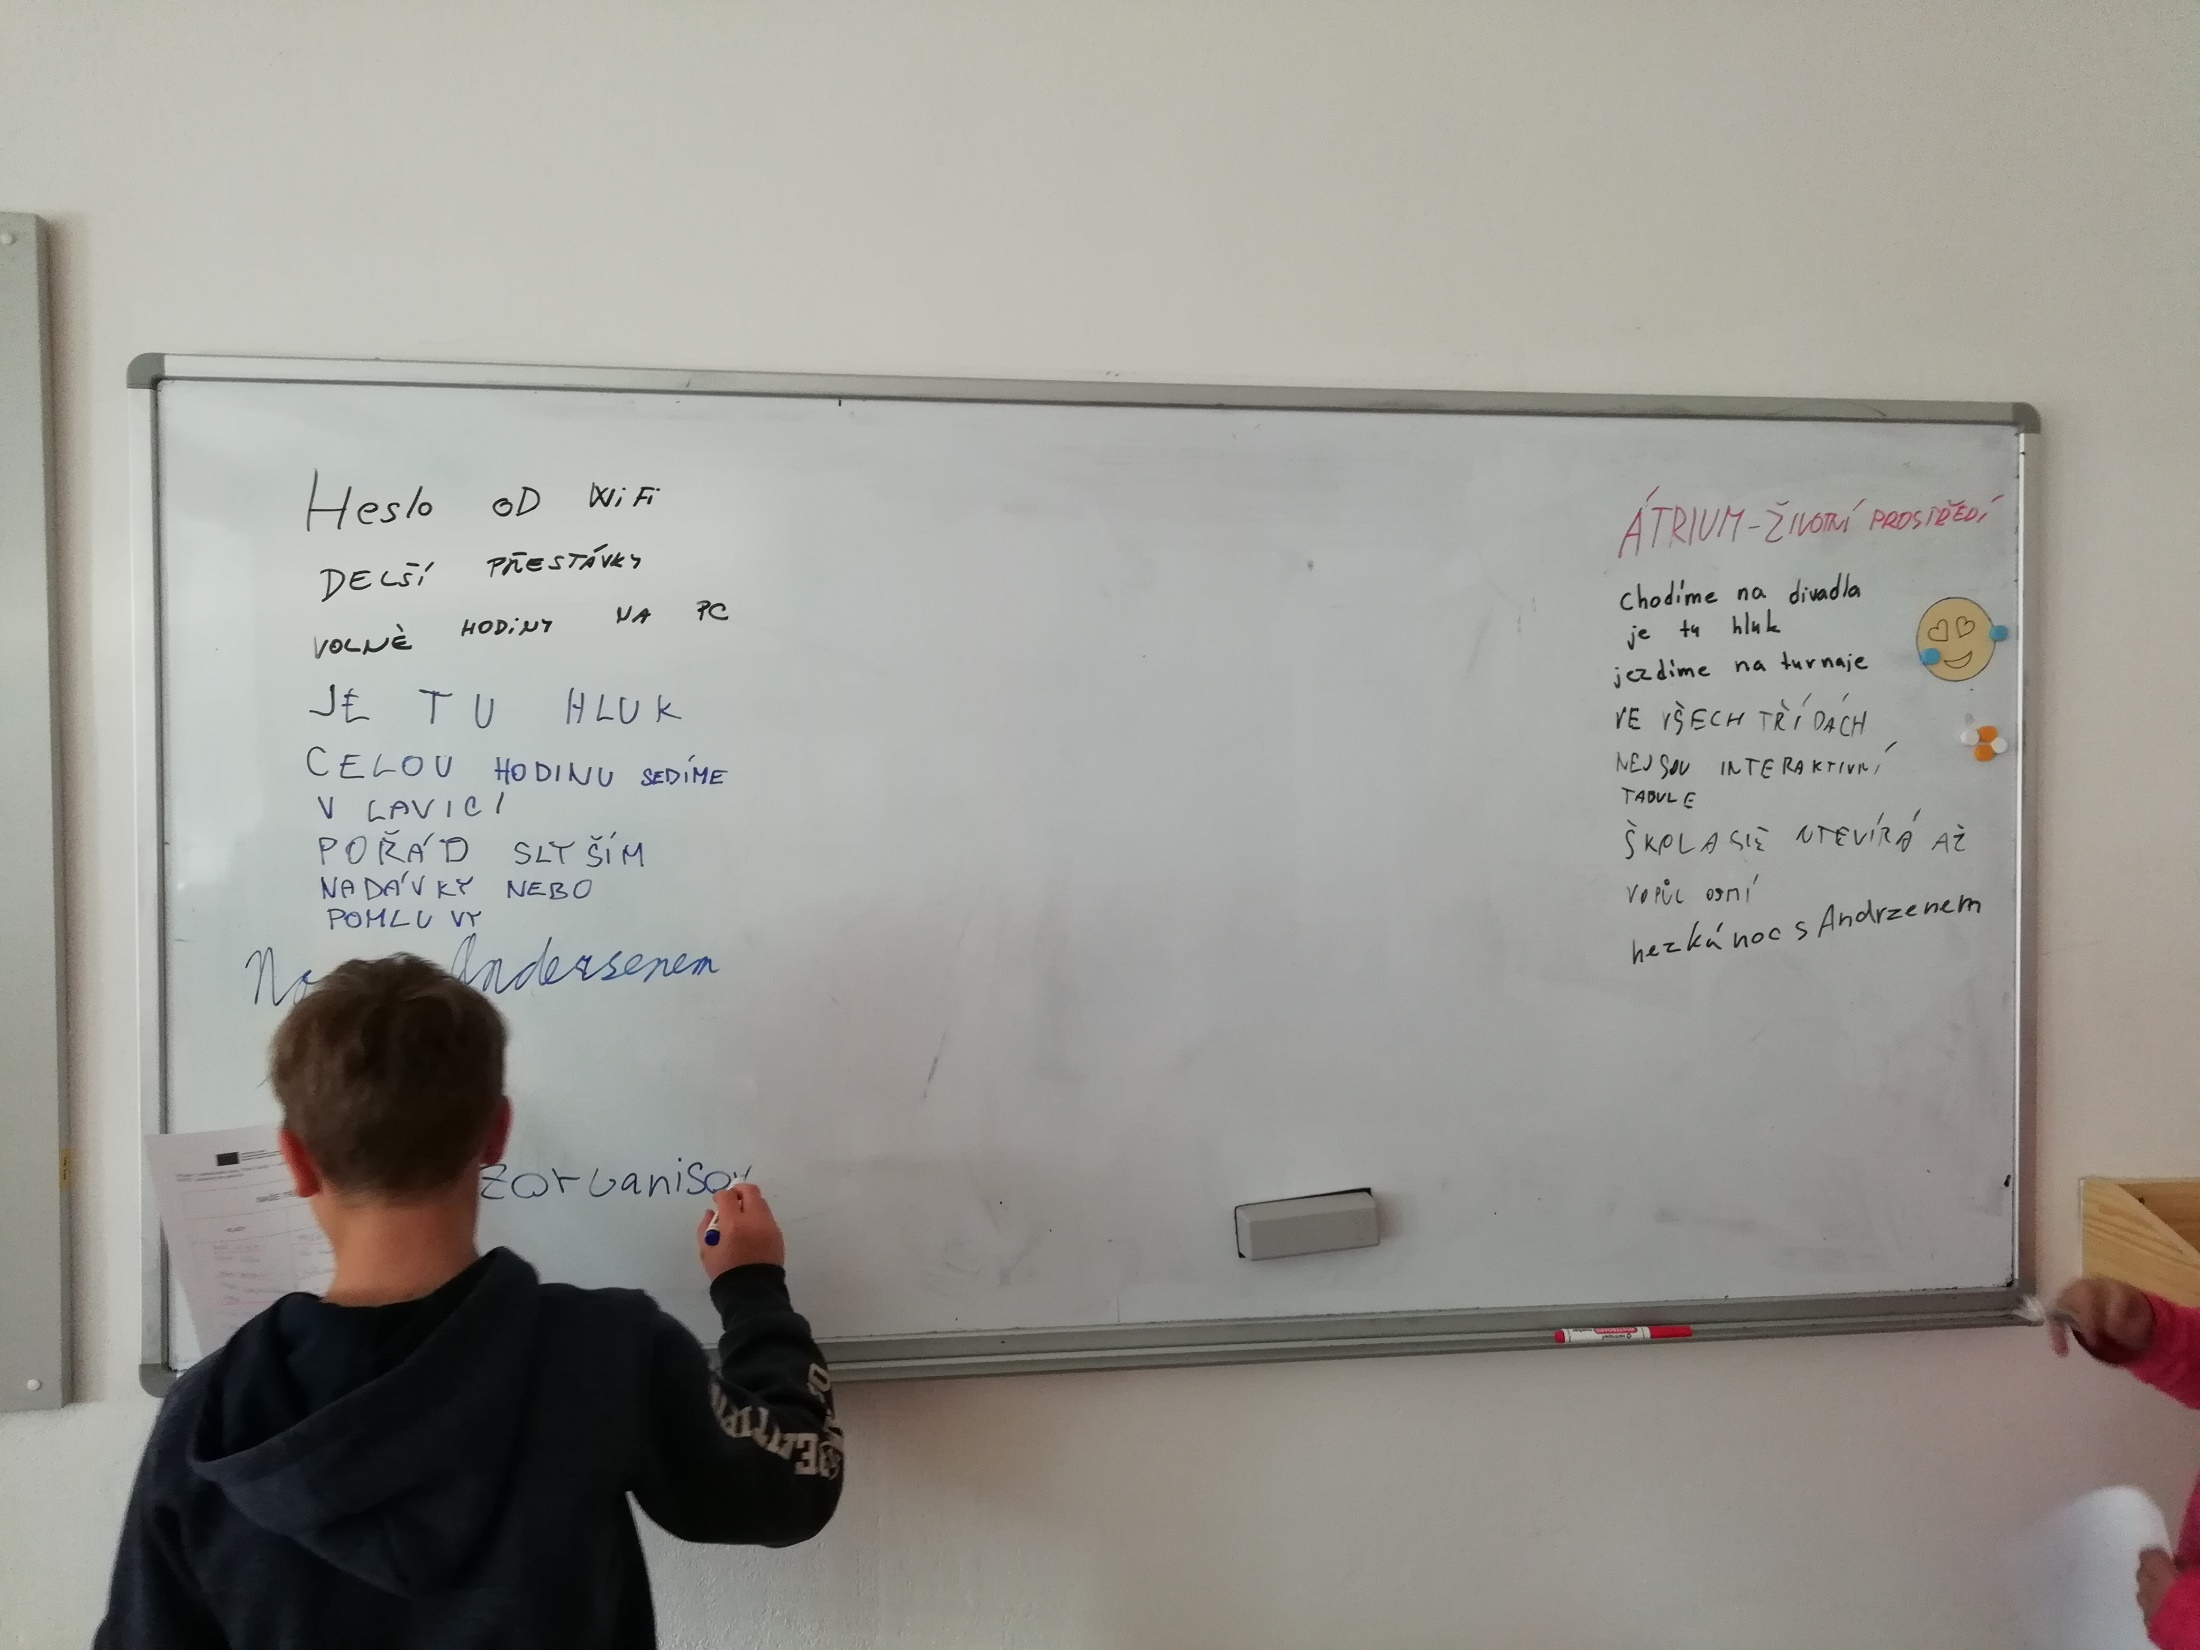 Heslo OD WiFi
DELŠÍ PŘESTÁVKY
VOLNÉ HODINY NA PC
JE TU HLUK
CELOU HODINU SEDÍME
V LAVICI
POŘÁD SLYŠÍM
NADÁVKY NEBO
POMLUVY
Andersenem
ÁTRIUM - ŽIVOTNÍ PROSTŘEDÍ
chodíme na divadla
je tu hluk
jezdíme na turnaje
VE VŠECH TŘÍDÁCH
NEJSOU INTERAKTIVNÍ
TABULE
ŠKOLA SE AŽ
V PŮL OSMÍ
hezká noc s Andrzenem